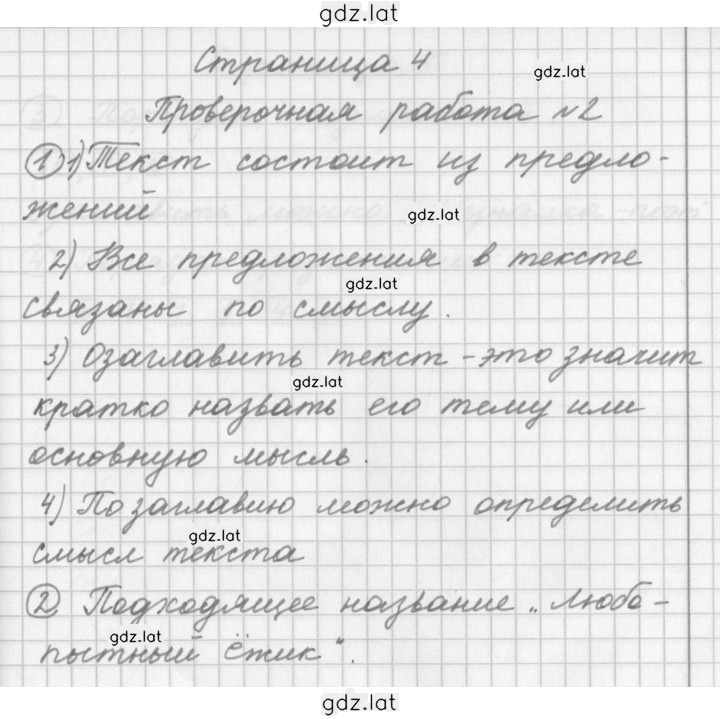 gdz.lat
Страница 4
gdz.lat
Проверочная работа №2
① 1) Текст состоит из предло-
жений
gdz.lat
2) Все предложения в тексте
gdz.lat
связаны по смыслу.
3) Озаглавить текст - это значит
gdz.lat
кратко назвать его тему или
основную мысль.
4) По заглавию можно определить
gdz.lat
смысл текста
② Подходящее название „Любо-
gdz.lat
пытный ёжик“.
gdz.lat